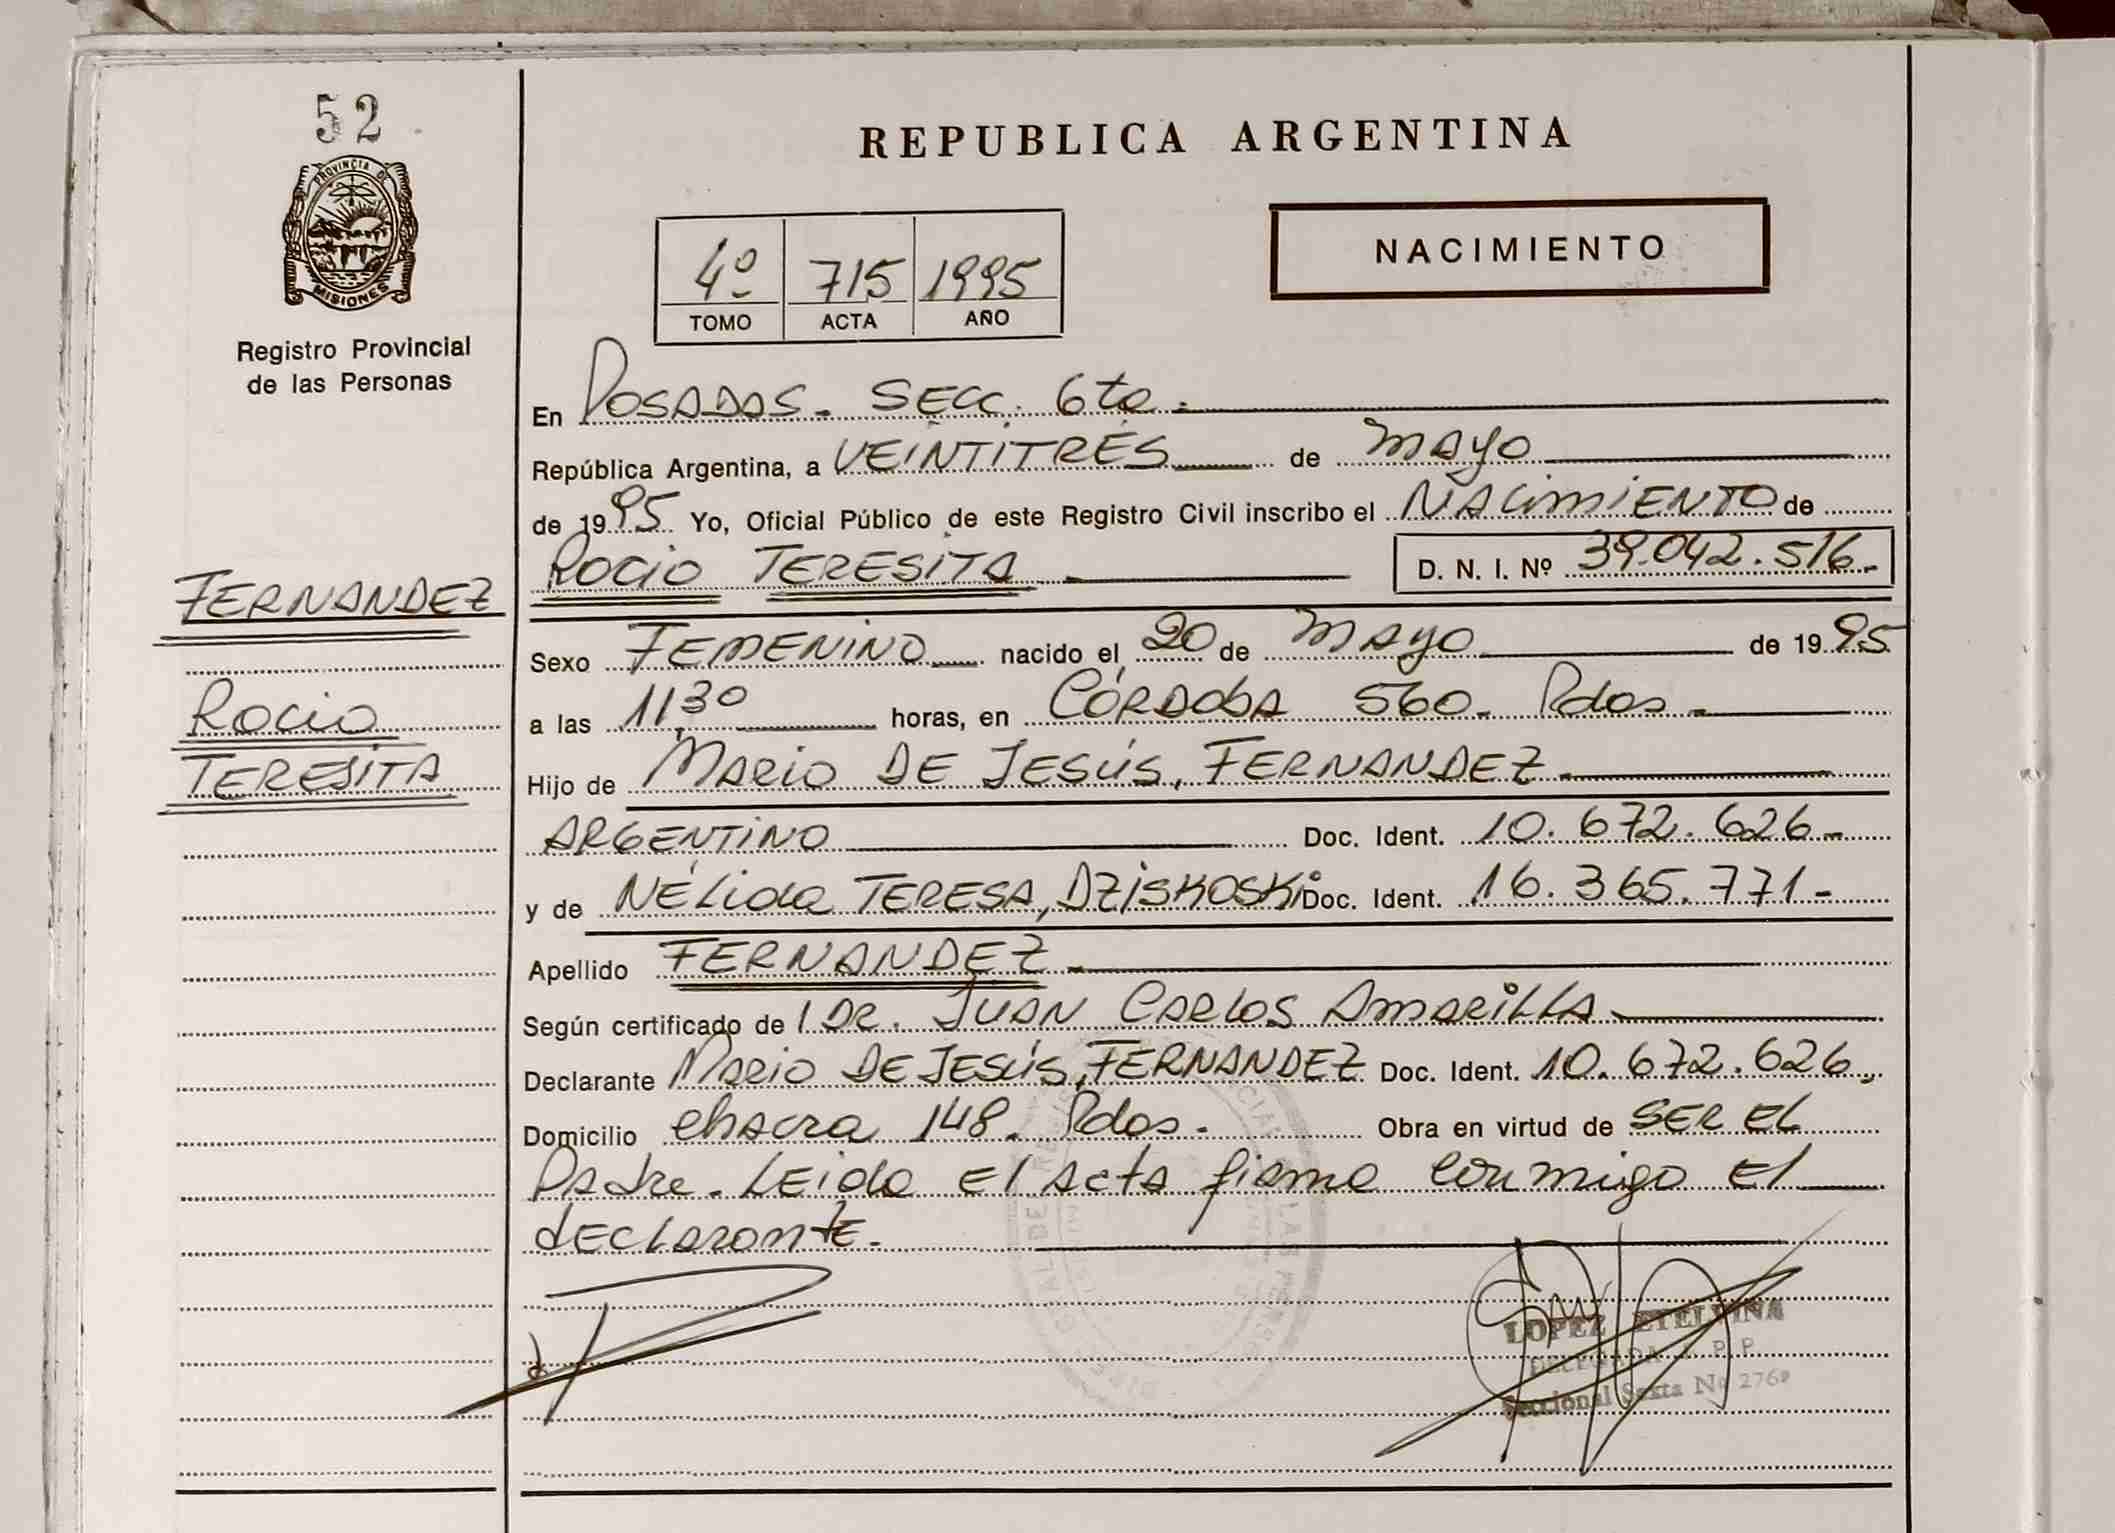 52
PROVINCIA DE
MISIONES
Registro Provincial
de las Personas
FERNANDEZ
Rocio
TERESITA
REPUBLICA ARGENTINA
4º 715 1995
TOMO ACTA AÑO
NACIMIENTO
En POSADAS. SECC. 6ta.
República Argentina, a VEINTITRÉS de MAYO
de 1995 Yo, Oficial Público de este Registro Civil inscribo el NACIMIENTO de
ROCIO TERESITA D. N. I. Nº 39.042.516.-
Sexo FEMENINO nacido el 20 de MAYO de 1995
a las 11,30 horas, en CÓRDOBA 560. Pdas.
Hijo de MARIO DE JESÚS, FERNANDEZ.
ARGENTINO Doc. Ident. 10.672.626.-
y de NÉLIDA TERESA, DZISKOSKI Doc. Ident. 16.365.771.-
Apellido FERNANDEZ.
Según certificado de l DR. JUAN CARLOS AMARILLA
Declarante MARIO DE JESÚS, FERNANDEZ Doc. Ident. 10.672.626.
Domicilio chacra 148. Pdas. Obra en virtud de SER EL
Padre. LEida El Acta firma conmigo El
dEclarantE.
LOPEZ ETELVINA
DELEGADA R. P. P.
Seccional Sexta Nº 2760